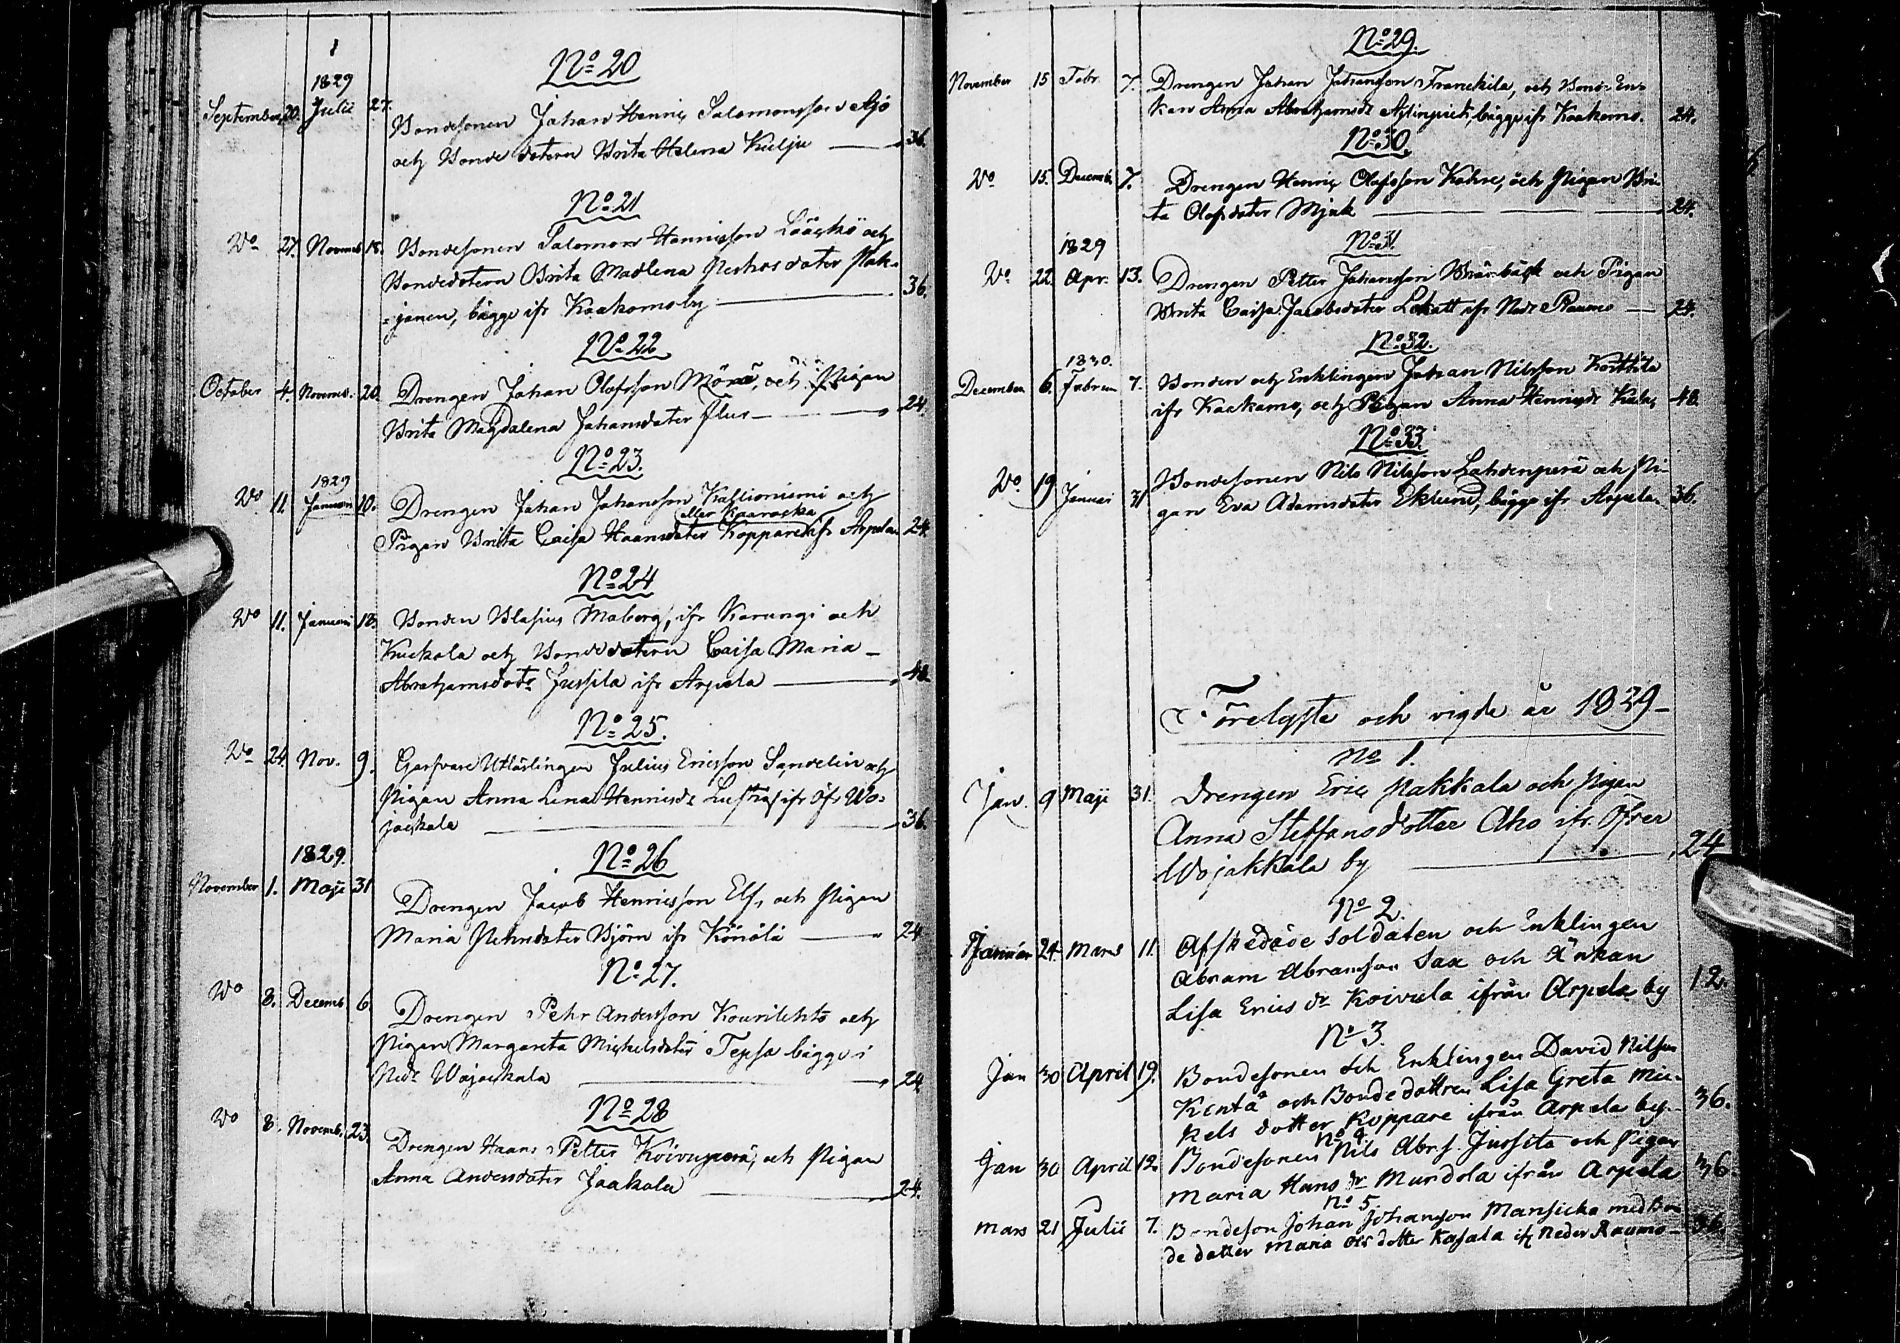 No 20
1829
September 20. Julii 27. Bondesonen Johan Henric Salomonsson Ajo
och Bondedotern Brita Helena Kulju 36.
No 21
Do 27. Novemb. 15. Bondesonen Salomon Henricsson Lääskö och
Bondedotern Brita Madlena Pehrsdoter Pak-
janen, bägge ifr Kaakamoby 36.
No 22
October 4. Novemb. 20. Drengen Johan Olofsson Mörä, och Pigan
Brita Magdalena Johansdoter Flus 24.
No 23.
1829
Do 11. Januari 10. Drengen Johan Johansson Kallioniemi och
eller Kaaraska
Pigan Brita Caisa Haansdoter Koppare ifr Arpela 24.
No 24
Do 11. Januari 18. Bonden Blasius Maberg, ifr Karungi och
Kuckola och Bondedotern Caisa Maria
Abrahamsdotr Jussila ifr Arpela 48.
No 25.
Do 24. Nov. 9. Garfvare Utlärlingen Julius Ericsson Sandelin och
Pigan Anna Lena Henricsdr ifr Öfr Wo-
jackala 36.
1829. No 26
November 1. Maji 31 Drengen Jacob Henricsson Elf, och Pigan
Maria Pehrsdoter Björn ifr Könölä 24
No 27.
Do 8. Decemb. 6. Drengen Pehr Andersson Kourilehto och
Pigan Margareta Michelsdoter Tepsa bägge i
Nedr Wojackala 24
No 28
Do 8. Novemb. 23. Drengen Haans Petter Koivuperä, och Pigan
Anna Andersdoter Jaakola 24.
No 29.
November 15 Febr. 7. Drengen Johan Johansson Franckila, och Bonde En-
kan Anna Abrahamsdr bägge ifr Kaakamo. 24.
No 30.
Do 15. Decemb. 7. Drengen Henric Olofsson Kohre, och Pigan Bri-
ta Olofsdoter Mjuk 24.
1829 No 31.
Do 22. Apr. 13. Drengen Petter Johansson och Pigan
Brita Caisa Jacobsdoter Lokatt ifr Nedr Raumo 24.
1830. No 32.
December 6. Februari 7. Bonden och Enklingen Johan Nilsson Korttila
ifr Kaakamo, och Pigan Anna Henricsdr 48.
No 33
Do 19 Januari 31 Bondesonen Nils Nilsson Lahdenperä och Pi-
gan Eva Adamsdoter Eklund, bägge ifr Arpela 36.
Förelyste och vigde år 1829
No 1.
Jan. 9 Maji 31. Drengen Eric Pakkala och Pigan
Anna Steffansdotter Aho ifr. Öfver
Wojakkala by 24
No 2.
Januari 24. Mars 11. Afskedade Soldaten och Enklingen
Abram Abramsson Sax och Änkan
Lisa Erics dr Koivula ifrån Arpela by 12.
No 3.
Jan 30 April 19. Bondesonen och Enklingen David Nilsson
Kentä och Bondedottren Lisa Greta Mic-
kels dotter Koppare ifrån Arpela by. 36.
No 4.
Jan 30 April 12. Bondesonen Nils Abrs. Jussila och Pigan
Maria Hans dr Murdola ifrån Arpela 36
No 5
Mars 21 Julii 7. Bondeson Johan Johansson Mansicka med Bon-
de dotter Maria dotter Kasala ifr Neder Raumo 36